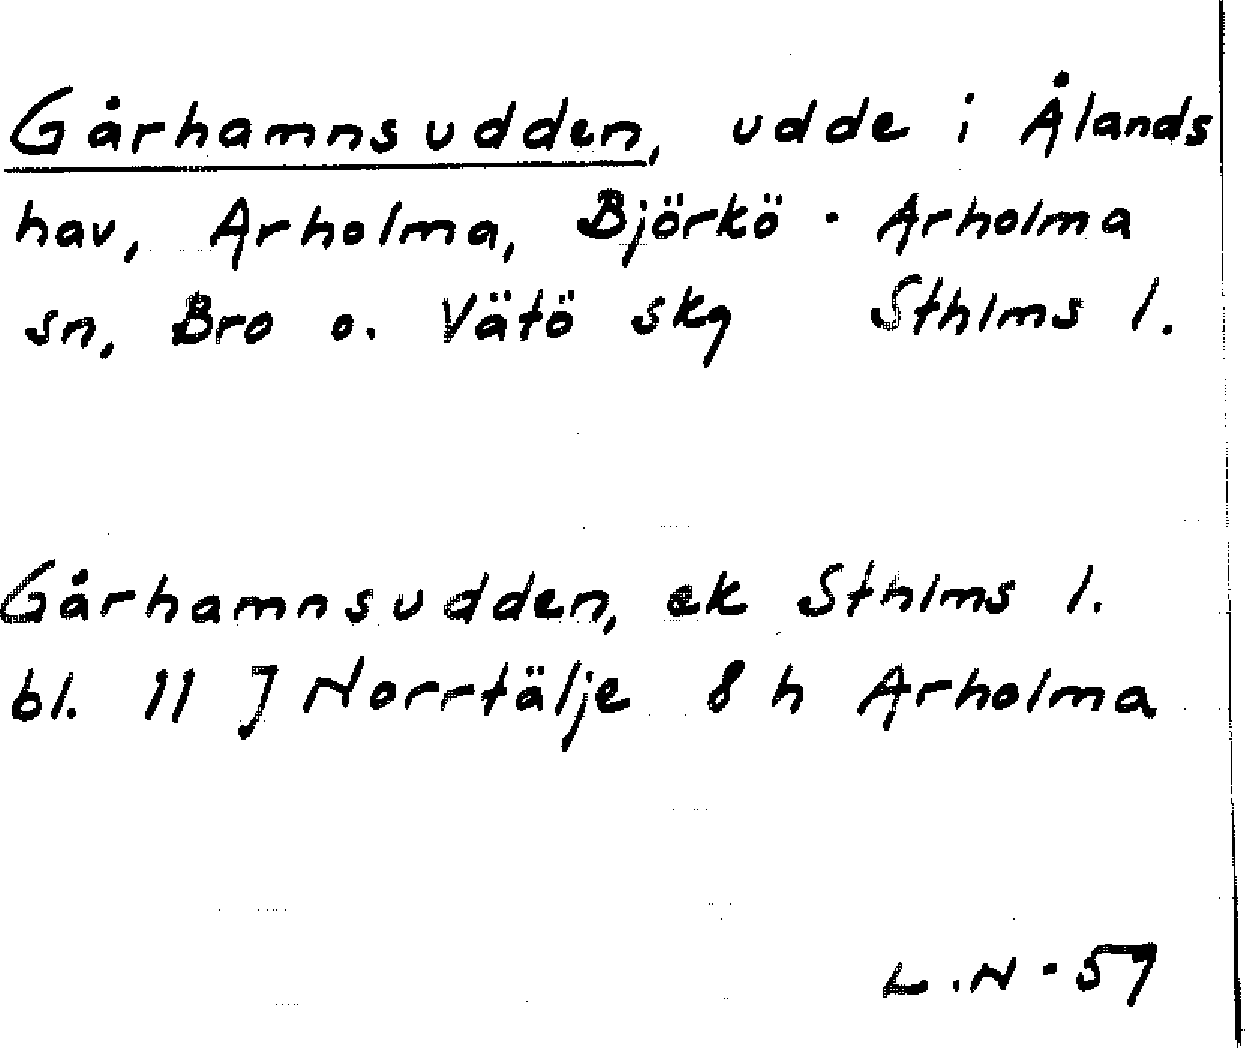 Gårhamnsudden, udde i Ålands
hav, Arholma, Björkö - Arholma
sn, Bro o. Vätö skg Sthlms l.
Gårhamnsudden, ek Sthlms l.
bl. 11 J Norrtälje 8 h Arholma
L.N - 57